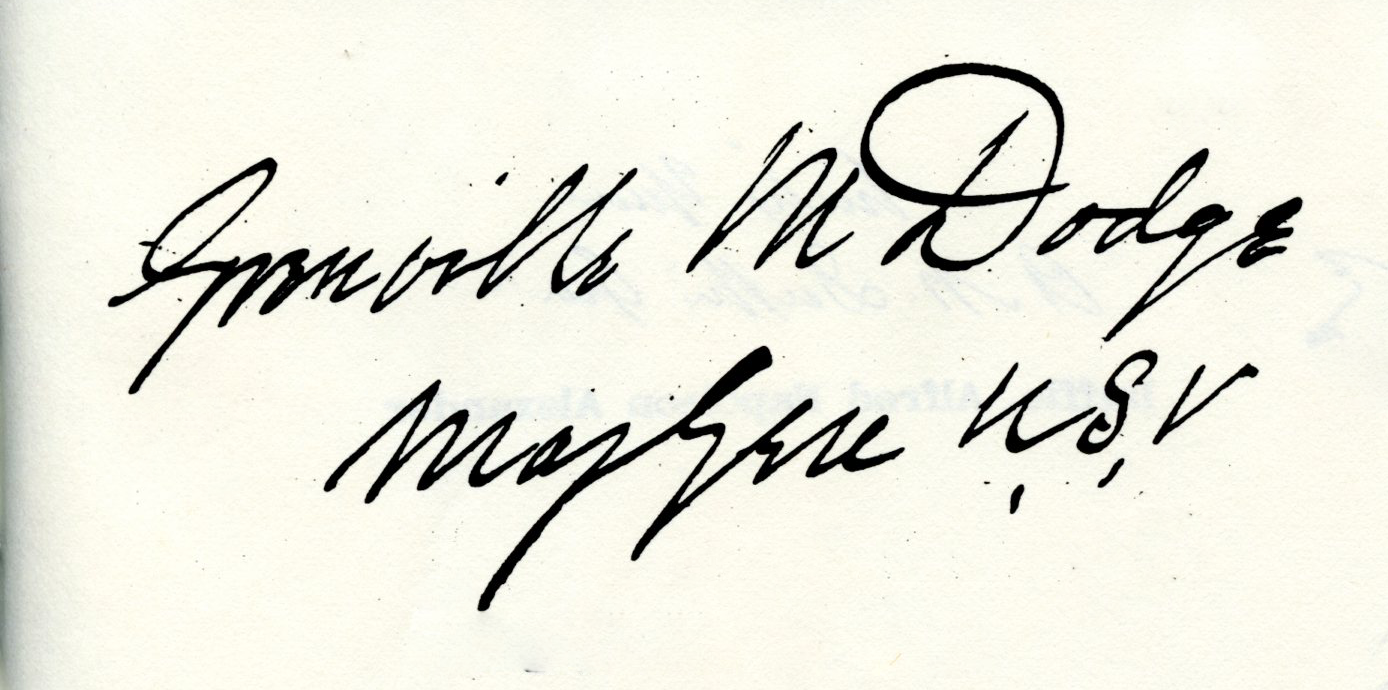 Grenville M Dodge
Maj Genl U, S, V